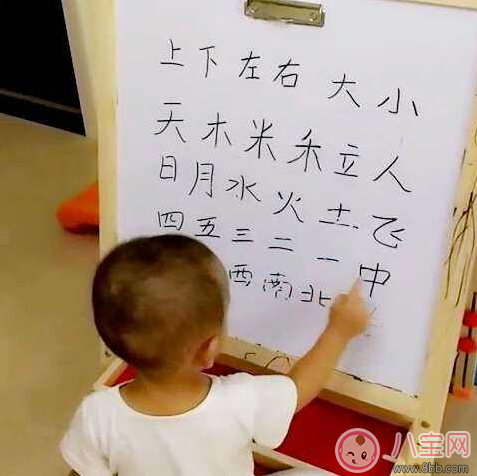 上下左右大小
天木米禾立人
日月水火土飞
四五三二一中
西南北
八宝网
www.8bb.com